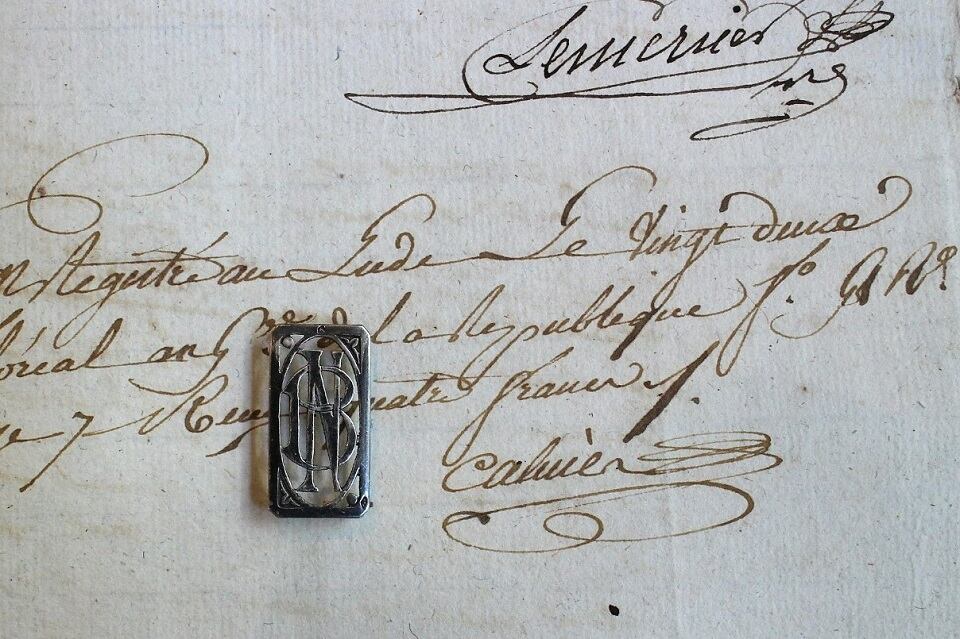 Lemercier
Enregistré au Lude Le Vingt deux
floréal an 13e de la Republique f.o
7 Reçu quatre francs
Cahuèr